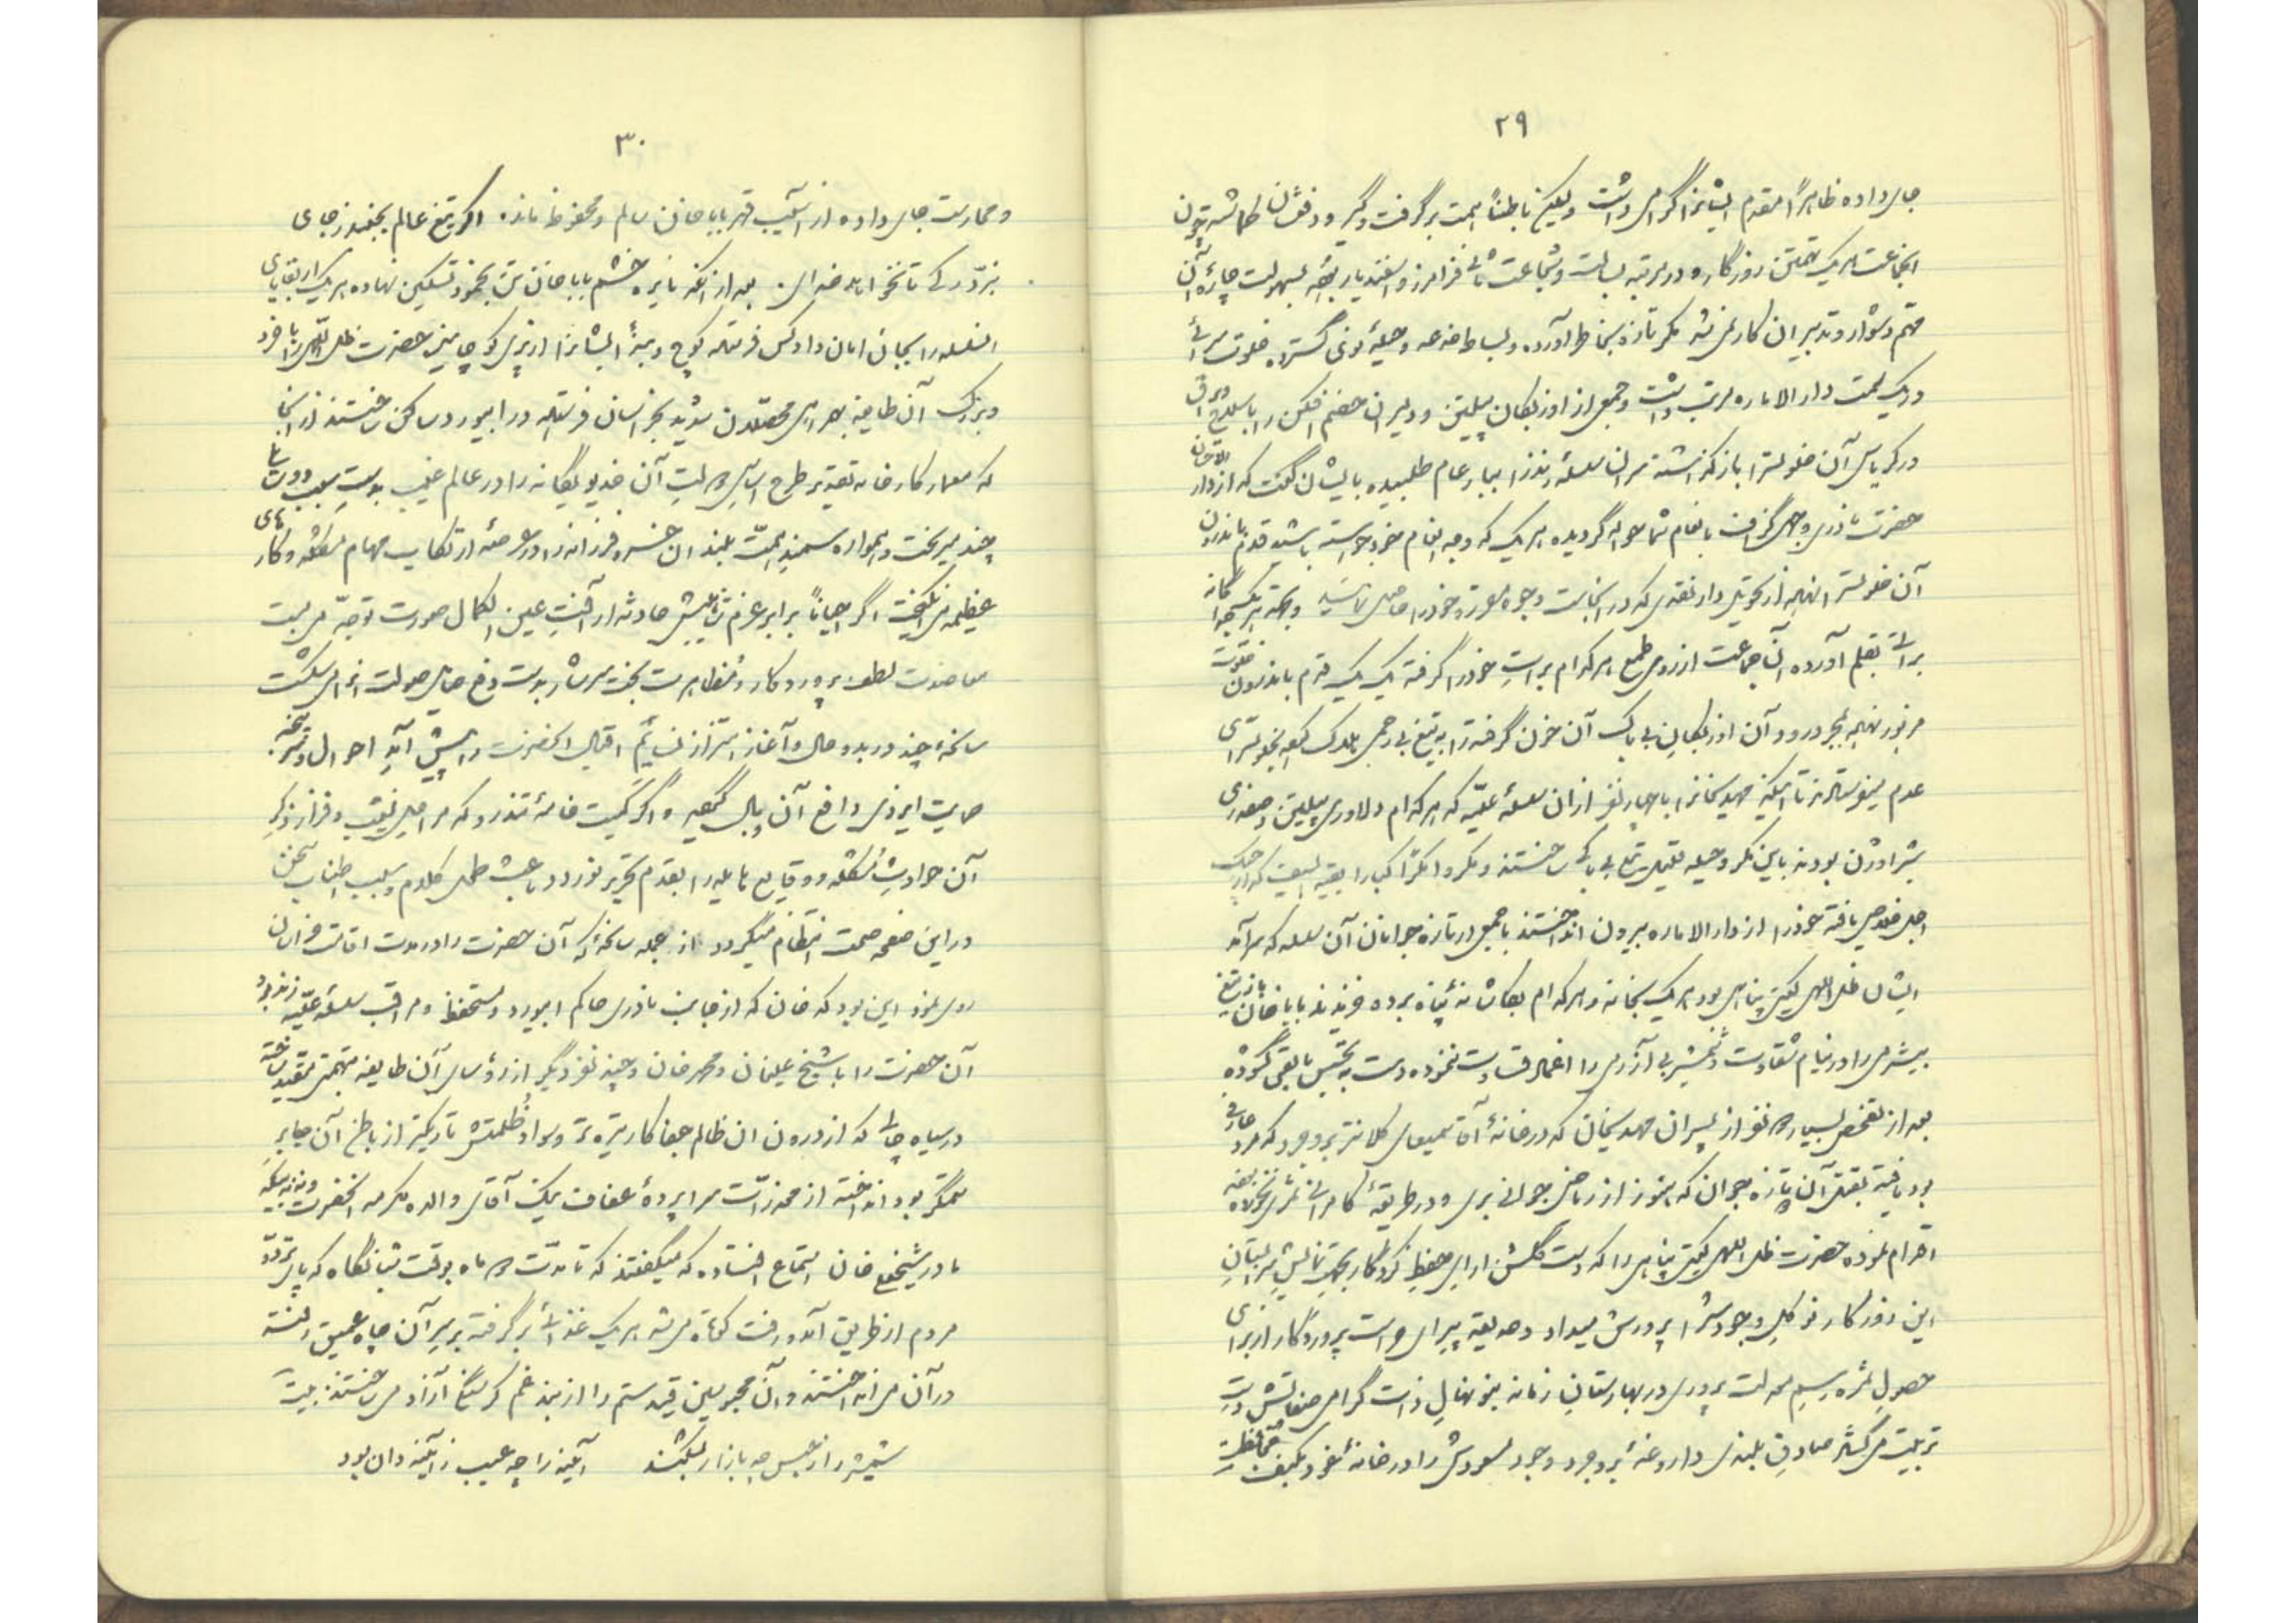 ۲۹
جای داده ظاهراً مقدم ایشانرا گرامی داشت ولیکن باطناً همت برگرفت و گیر و دفعشان گماشته چون
اینجماعت هریک تهمتن روزگار و در مرتبه بسالت و شجاعت ثانی فرامرز و اسفندیار بودند بسهولت چارهٔ آن
مهم دشوار و تدبیر ان کار نمیشد مکر تازه بخاطر آورده و بساط خدعه و حیلهٔ نوی گسترده خلوت سرائی
در یک سمت دار الاماره مرتب داشت و جمعی از اوزبکان پیلتن و دلیران خصم افکن را با سلاح و یراق
در کریاس آن خلوتسرا باز گذاشته سران سلسلهٔ زندرا ببار عام طلبیده بایشان گفت که از دار
حضرت نادری وجهی گزاف بانعام شما حواله گردیده هریک که وجه انعام خود خواسته باشید قدم باندرون
آن خلوتسرا نهید از تحویلدار نقدی که در اینجاست وجوه مقرره خود را حاصل نمائید و بجهة هریک جداگانه
براتی بقلم آورده آن جماعت از روی طمع هرکدام برات خود را گرفته یک یک قدم باندرون خلوت
مزبور نهید بمجرد ورود آن اوزبکان بی باک آن خون گرفته را به تیغ بیرحمی هلاک کرده بخلوتسرای
عدم میفرستادند تا اینکه مهدیخانرا با چهار نفر از ان سلسلهٔ علیّه که هرکدام دلاوری پیلتن و صفدری
شیراوژن بودند باین مکر و حیله قتیل تیغ بی باکی ساختند و مکروا مکراً کبارا بقیة السیف که از چنگ
اجل خلاصی یافته خود را از دار الاماره بیرون انداختند با جمعی از تازه جوانان آن سلسله که سرآمد
ایشان ظل اللهی گیتی پناهی بود هریک بخانه و هرکدام بکاشانهٔ پناه برده فریدند باباخان باز تیغ
بیشرمی را در نیام شقاوت و شمشیر بی آزرمی را اغماد قساوت ننموده دست به تجسس مابقی گشوده
بعد از تفحص بسیار دو نفر از پسران مهدیخان که در خانهٔ آقا سمیعای کلانتر بروجرد که مرد عارفی
بود یافته بقتل آن تازه جوان که هنوز از ریاض جوانی بری و در طریقهٔ کامرانی ثمری نخورده بودند
اقدام نموده حضرت ظل اللهی گیتی پناهی را که دست گلشن ارای حفظ کردگار بجهت نمایش سرابستان
این روزگار نو گل وجودشرا پرورش میداد و حدیقه پیرای حراست پروردگار از برای
حصول ثمره رسم معدلت پروری در بهارستان زمانه نونهال ذات گرامی صفاتش تربیت
تربیت میکشد صادق بلندی داروغهٔ بروجرد وجود مسعودش را در خانهٔ خود بکنف محافظت
۳۰
و حمایت جای داده از آسیب قهر باباخان سالم و محفوظ مانده اگر تیغ عالم بجنبد ز جای
نبرّد رگی تا نخواهد خدای. بعد از آنکه نایره خشم باباخان تن بخمود تسکین نهاده هریک از بقایای
السلسله را بجان امان داد و کس فرستاده کوچ و بنهٔ ایشانرا از پری کوچانیده حضرت ظل اللهی را با افراد
و بزرگ آن طایفه بهمراهی محصلان شدید بخراسان فرستاده در ابیورد ساکن ساختند از آنجا
که معمار کارخانه تقدیر طرح اساس دولت آن خدیو یگانه را در عالم غیب بدست سبب دوستی
چند میریخت و همواره سمند همت بلند ان خسرو فرزانه را در عرصهٔ ارتکاب مهام مشکله و کارهای
عظیمه می انگیخت اگر احیاناً برابر عزم متینش حادثه از آفت عین الکمال صورت توجه می بست
معاضدت لطف پروردگار و مظاهرت بخت سرشار بدست دفع حمایل صولت انرا می شکست
سانحهٔ چند در بدو حال و آغاز اهتزاز نسایم اقبال آنحضرت را پیش آمد احوال
حمایت ایزدی دافع آن وبال گردید و اگر کمیت خامهٔ تندرو که مراحل نشیب و فراز ذکر
آن حوادث مشکله و وقایع هایله را بقدم تحریر نوردد باعث طول کلام و سبب اطناب سخن
در این صفحه صحت انتظام میگردد از جمله سانحهٔ که آن حضرت را در مدت اقامت خراسان
روی نمود این بود که خان که از جانب نادری حاکم ابیورد و مستحفظ و مراقب سلسلهٔ علیّه زندیه بود
آن حضرت را با شیخ علیخان و محمد خان و چند نفر دیگر از رؤسای آن طایفه بتهمتی مقید ساخته
در سیاه چاهی که از درون ان ظالم جفا کار تیره تر و سواد ظلمتش تاریکتر از باطن آن جابر
ستمگر بود انداخته از مخدرات سراپردهٔ عفاف بیک آقای والده مکرمه آنحضرت
مادر شیخعلیخان استماع افتاده که میگفتند که تا مدت دو ماه بوقت شبانگاه که پای تردد
مردم از طریق آمد و رفت کوتاه میشد هریک غذائی برگرفته بر سر آن چاه عمیق رفته
در آن می انداختند و آن محبوسین قید ستم را از بند غم گرسنگی آزاد می ساختند: بیت
شیشه را از حبس چه بازار بشکند آینه را چه عیب ز آینه دان بود